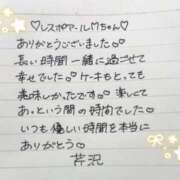 ♡レスポアール♡ちゃん♡
ありがとうございました♡
長い時間一緒に過ごせて
幸せでした♡ケーキもとても
美味しかったです♡楽しくて
あっという間の時間でした♡
いつも優しい時間を本当に
ありがとう♡
芹沢